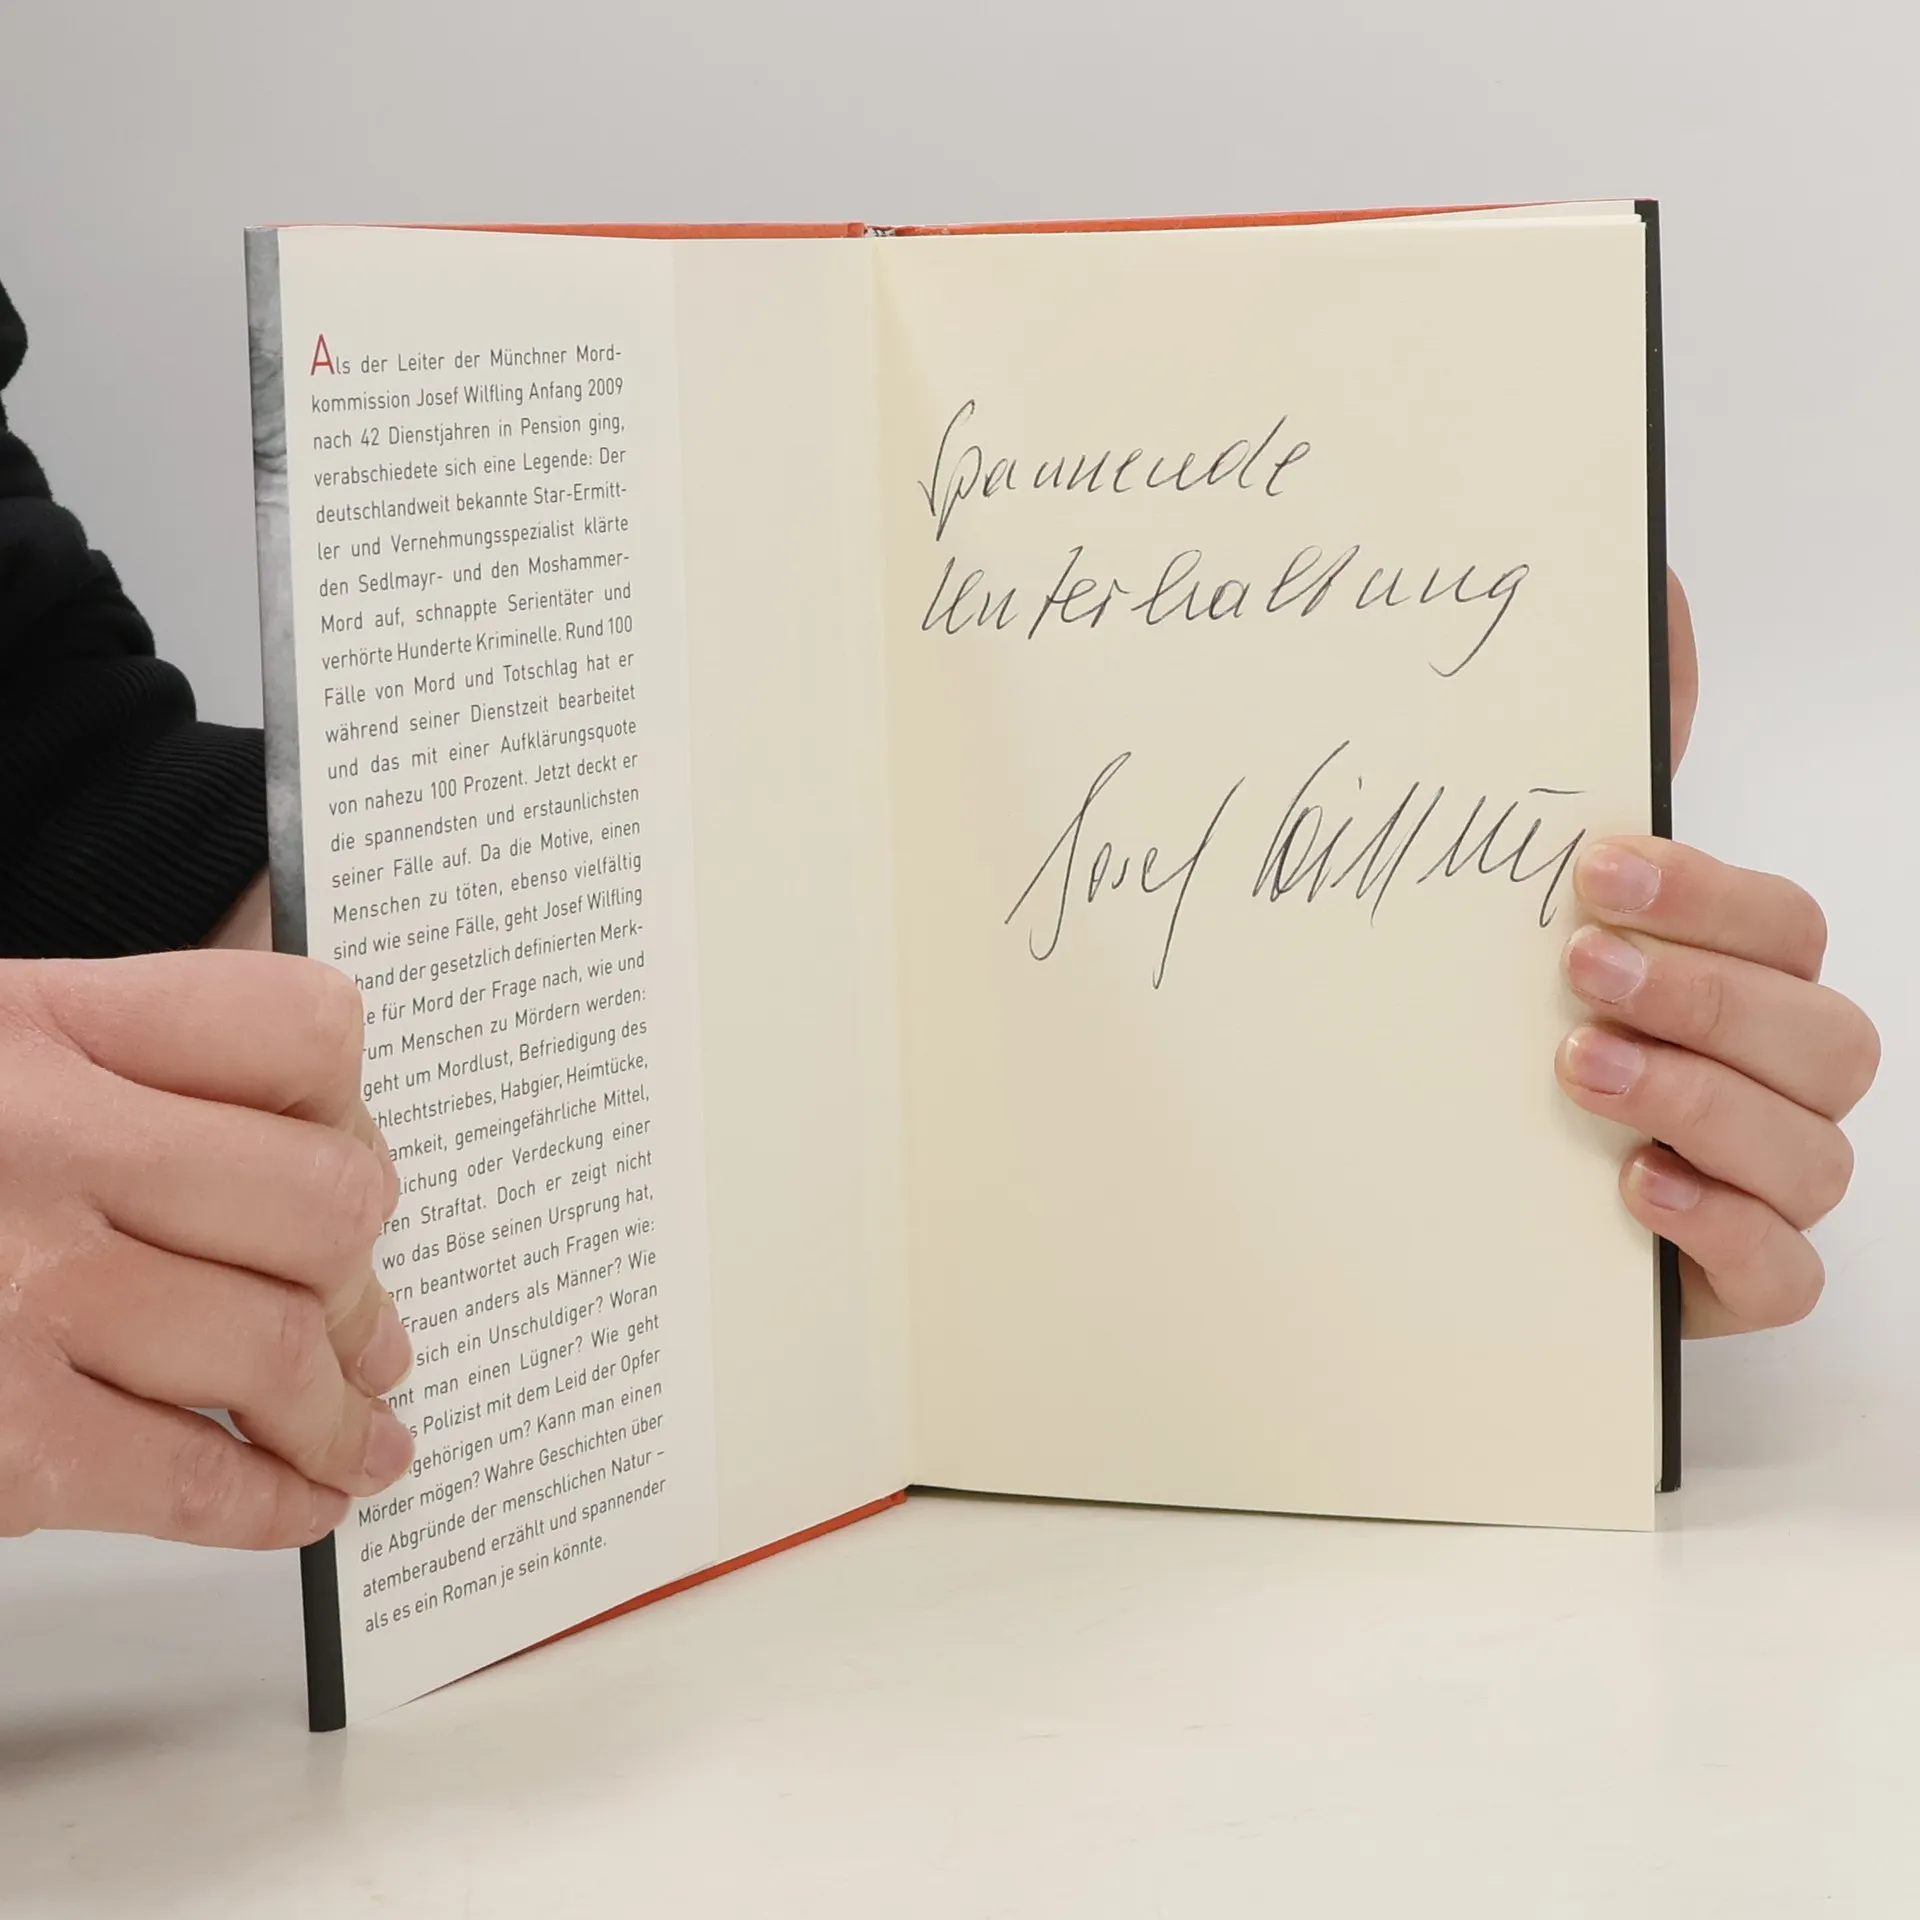 Als der Leiter der Münchner Mord-
kommission Josef Wilfling Anfang 2009
nach 42 Dienstjahren in Pension ging,
verabschiedete sich eine Legende: Der
deutschlandweit bekannte Star-Ermitt-
ler und Vernehmungsspezialist klärte
den Sedlmayr- und den Moshammer-
Mord auf, schnappte Serientäter und
verhörte Hunderte Kriminelle. Rund 100
Fälle von Mord und Totschlag hat er
während seiner Dienstzeit bearbeitet
und das mit einer Aufklärungsquote
von nahezu 100 Prozent. Jetzt deckt er
die spannendsten und erstaunlichsten
seiner Fälle auf. Da die Motive, einen
Menschen zu töten, ebenso vielfältig
sind wie seine Fälle, geht Josef Wilfling
hand der gesetzlich definierten Merk-
e für Mord der Frage nach, wie und
rum Menschen zu Mördern werden:
geht um Mordlust, Befriedigung des
chlechtstriebes, Habgier, Heimtücke,
amkeit, gemeingefährliche Mittel,
lichung oder Verdeckung einer
ren Straftat. Doch er zeigt nicht
wo das Böse seinen Ursprung hat,
ern beantwortet auch Fragen wie:
Frauen anders als Männer? Wie
sich ein Unschuldiger? Woran
nnt man einen Lügner? Wie geht
s Polizist mit dem Leid der Opfer
gehörigen um? Kann man einen
Mörder mögen? Wahre Geschichten über
die Abgründe der menschlichen Natur –
atemberaubend erzählt und spannender
als es ein Roman je sein könnte.
Spannende
Unterhaltung
Josef Wilfling